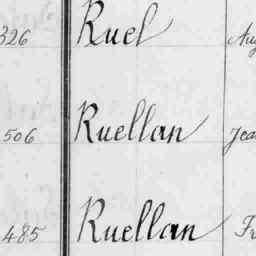 326 Ruel Aug
506 Ruellan Jea
485 Ruellan Fr